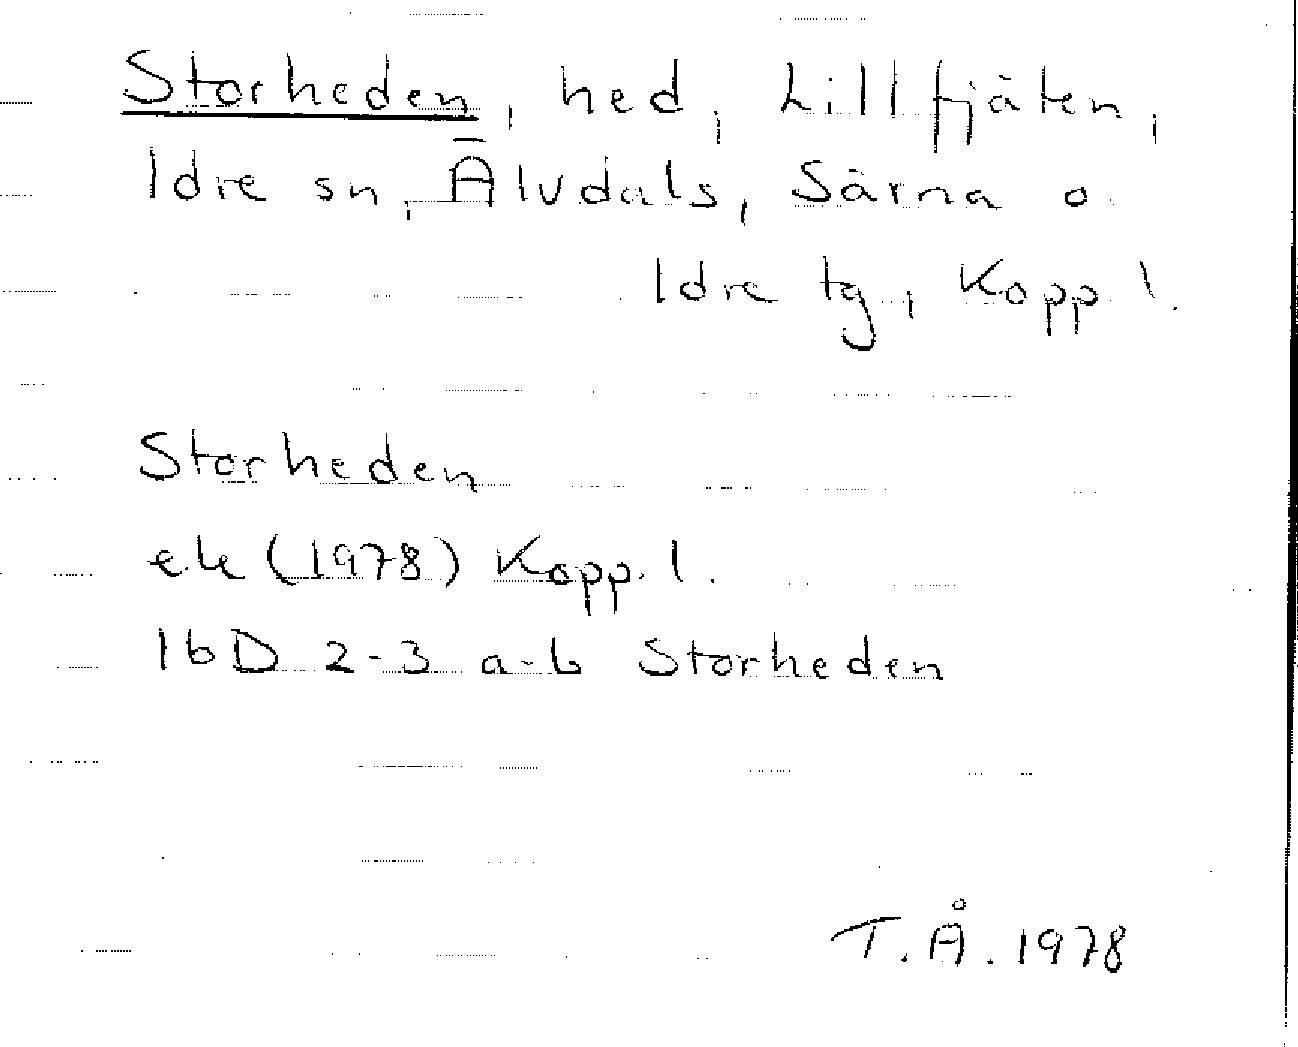 Storheden, hed, Lillfjäten,
Idre sn, Älvdals, Särna o.
Idre tg, Kopp. l.
Storheden
ek (1978) Kopp. l.
16D 2-3 a-b Storheden
T.Å. 1978